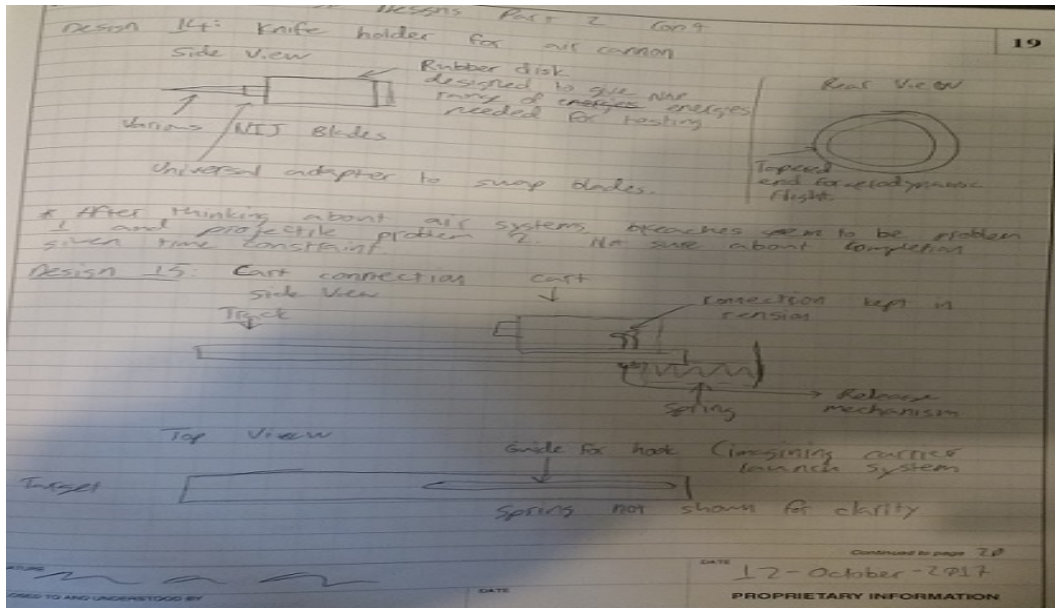 Designs Part 2 Con't
19
Design 14: Knife holder for air cannon
Side View
Rubber disk
designed to give
range of energies energies
needed for testing
Various NIJ Blades
Universal adapter to swap blades.
Rear View
Tapered
end for aerodynamic
flight.
* After thinking about air systems, breaches seem to be problem
1 and projectile problem 2. No sure about completion
given time constraint.
Design 15: Cart connection
Side View
Track
Cart
connection kept in
tension
Spring
Release
mechanism
Top View
Guide for hook (imagining carrier
launch system
Target
Spring not shown for clarity
Continued to page 20
DATE
12-October-2017
AND UNDERSTOOD BY
DATE
PROPRIETARY INFORMATION